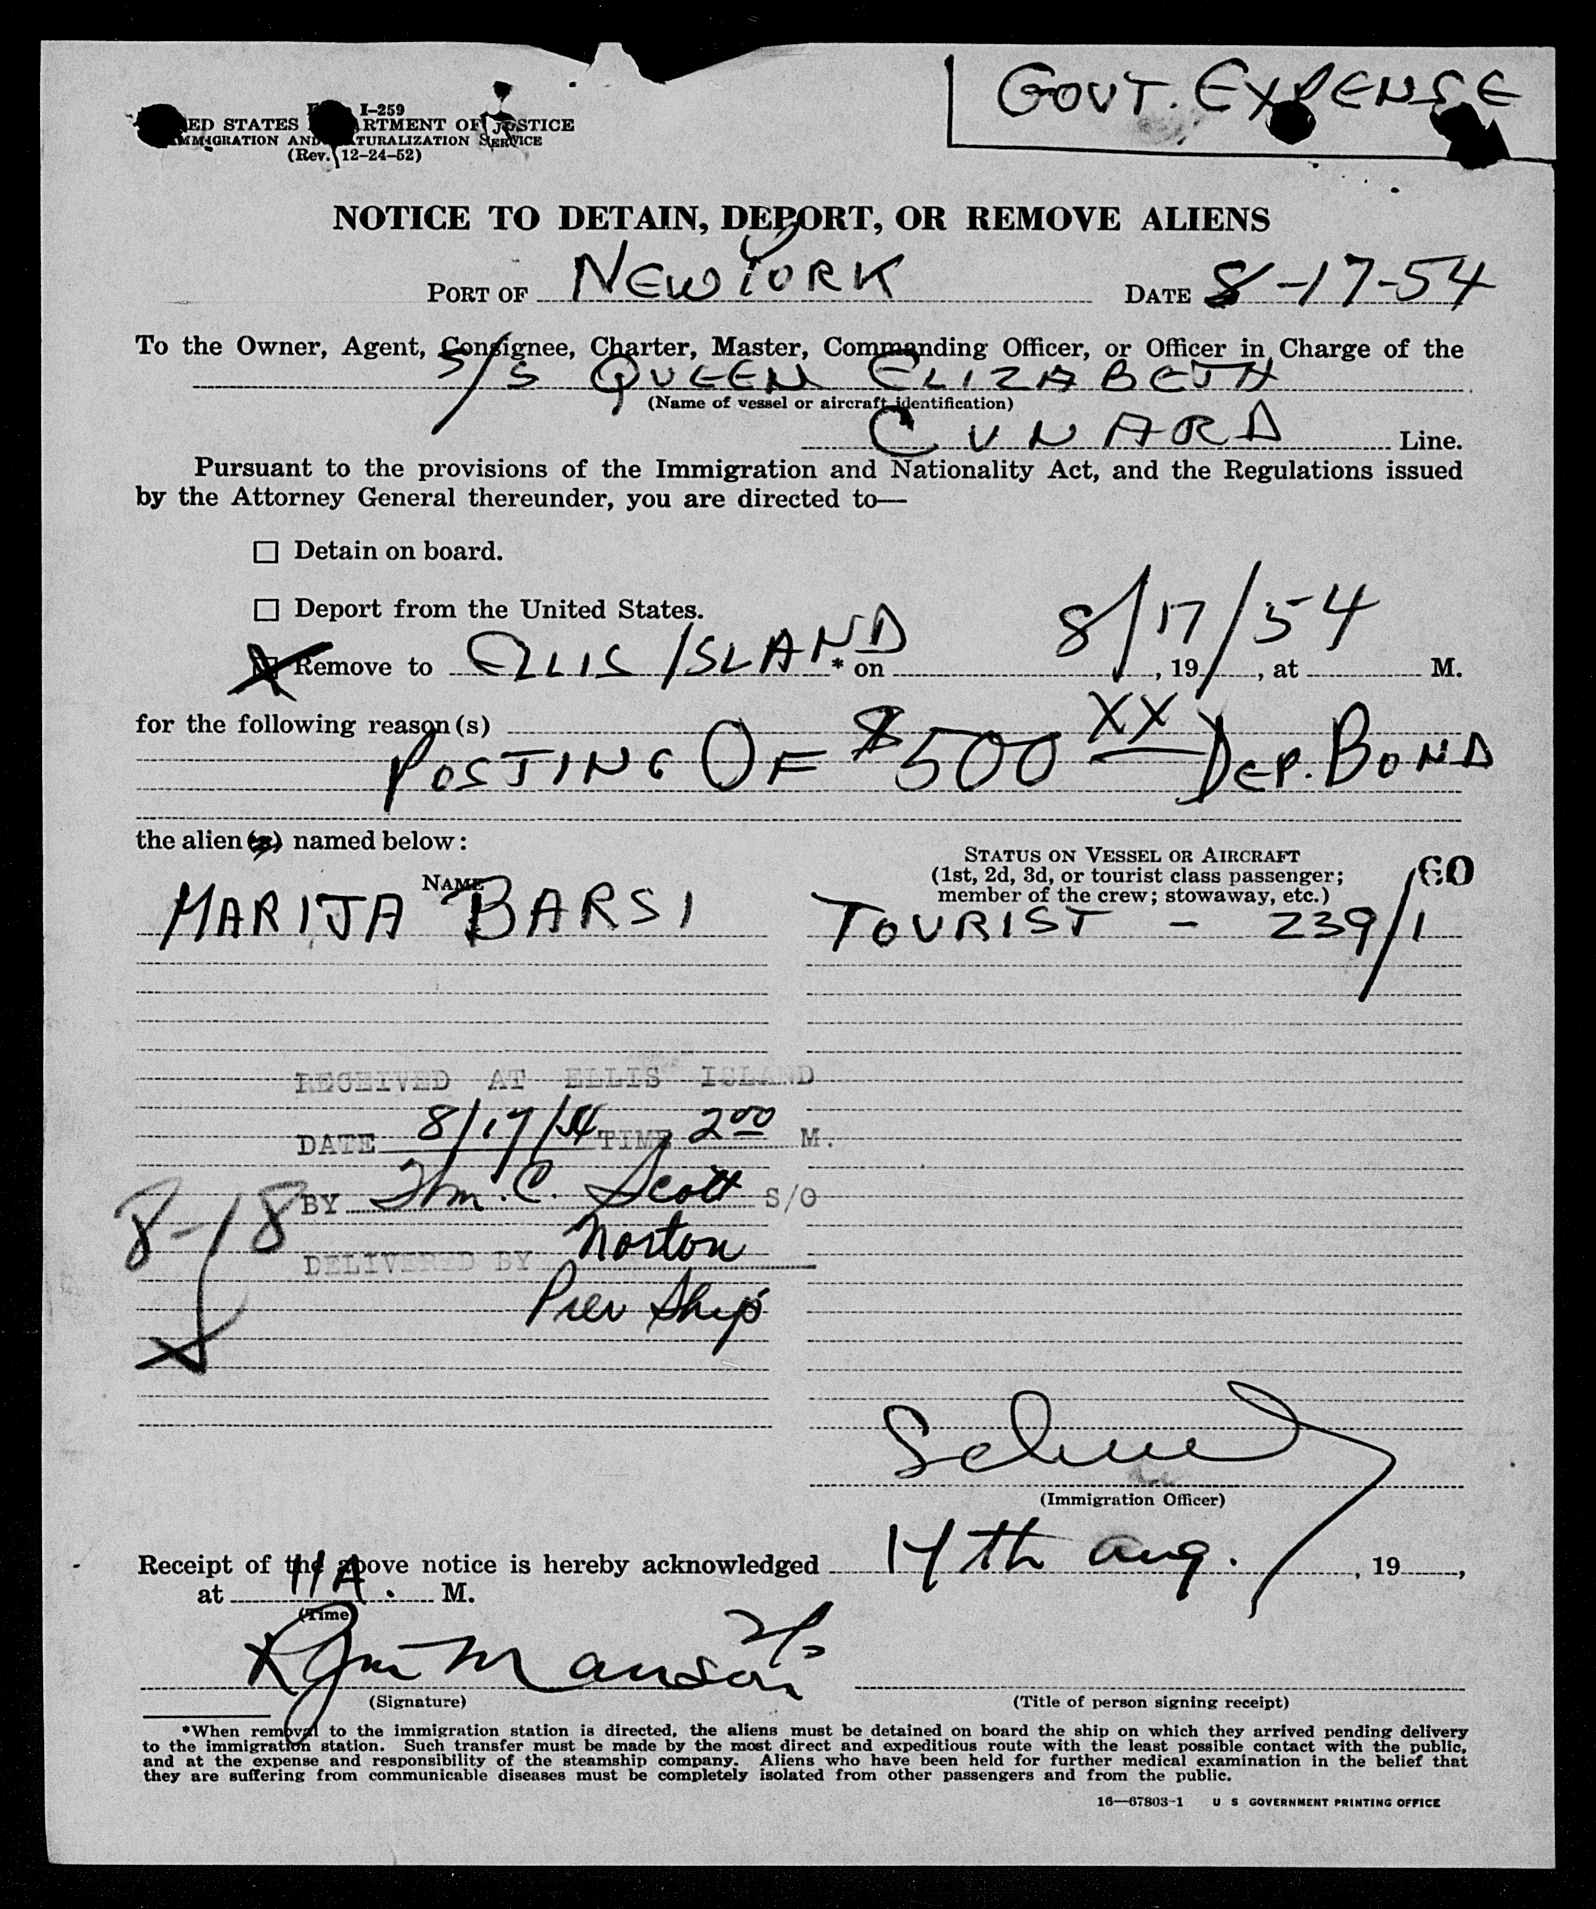 GOVT. EXPENSE
I-259
ED STATES RTMENT OF JUSTICE
IMMIGRATION AND NATURALIZATION SERVICE
(Rev. 12-24-52)
NOTICE TO DETAIN, DEPORT, OR REMOVE ALIENS
PORT OF NEW YORK DATE 8-17-54
To the Owner, Agent, Consignee, Charter, Master, Commanding Officer, or Officer in Charge of the
S/S QUEEN ELIZABETH
(Name of vessel or aircraft identification)
CUNARD Line.
Pursuant to the provisions of the Immigration and Nationality Act, and the Regulations issued
by the Attorney General thereunder, you are directed to—
☐ Detain on board.
☐ Deport from the United States.
Remove to ELLIS ISLAND * on 8/17/54, 19, at M.
for the following reason(s)
POSTING OF $500 XX DEP. BOND
the alien(s) named below:
STATUS ON VESSEL OR AIRCRAFT
(1st, 2d, 3d, or tourist class passenger;
member of the crew; stowaway, etc.)
60
NAME
MARIJA BARSI TOURIST - 239/1
RECEIVED AT ELLIS ISLAND
DATE 8/17/54 TIME 2 00 M.
BY C. Scott S/O
8-18
DELIVERED BY Norton
Pier Ship
(Immigration Officer)
Receipt of the above notice is hereby acknowledged 17th Aug., 19,
at 11 A. M.
(Time)
Manson
(Signature) (Title of person signing receipt)
*When removal to the immigration station is directed, the aliens must be detained on board the ship on which they arrived pending delivery
to the immigration station. Such transfer must be made by the most direct and expeditious route with the least possible contact with the public,
and at the expense and responsibility of the steamship company. Aliens who have been held for further medical examination in the belief that
they are suffering from communicable diseases must be completely isolated from other passengers and from the public.
16—67803-1 U S GOVERNMENT PRINTING OFFICE